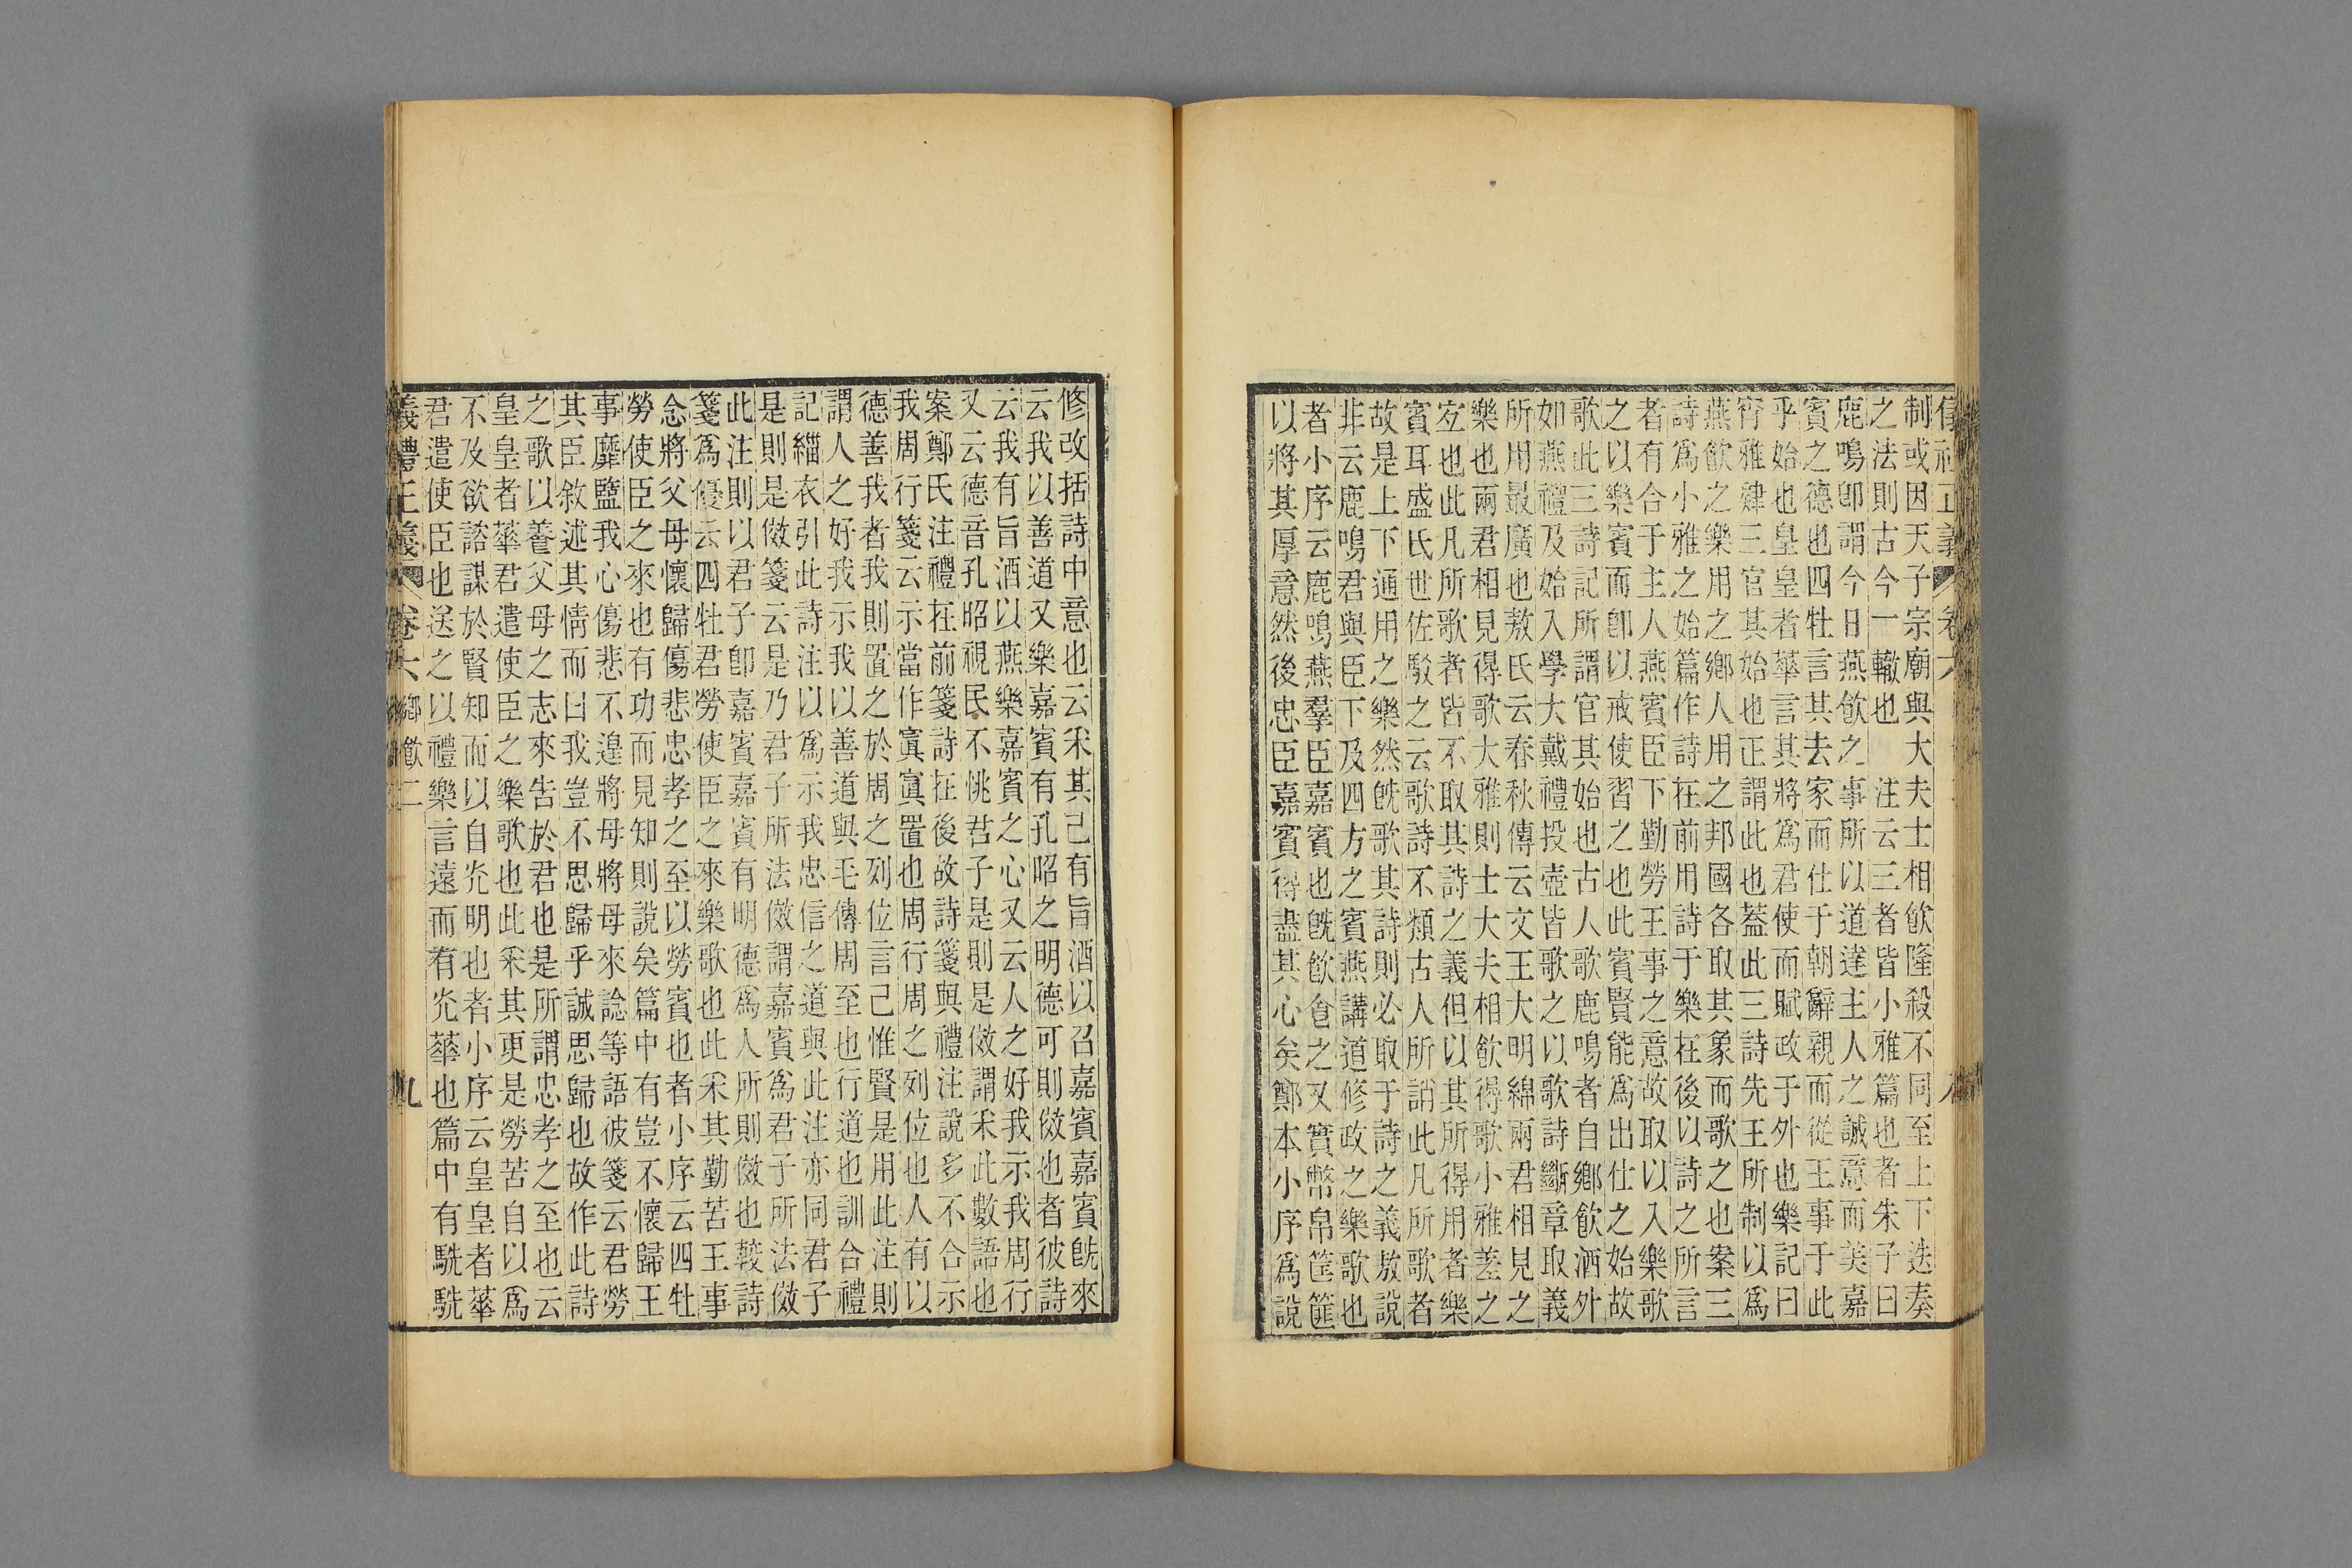 制或因天子宗廟與大夫士相飲隆殺不同至上下迭奏
之法則古今一轍也　注云三者皆小雅篇也者朱子曰
鹿鳴卽謂今日燕飲之事所以道達主人之誠意而美嘉
賓之德也四牡言其去家而仕于朝辭親而從王事于此
乎始也皇皇者華言其將爲君使而賦政于外也樂記曰
宵雅肄三官其始也正謂此也蓋此三詩先王所制以爲
燕飲之樂用之鄉人用之邦國各取其象而歌之也案三
詩爲小雅之始篇作詩在前用詩于樂在後以詩之所言
者有合于主人燕賓臣下勤勞王事之意故取以入樂歌
之以樂賓而卽以戒使習之也此賓賢能爲出仕之始故
歌此三詩記所謂官其始也古人歌鹿鳴者自鄉飲酒外
如燕禮及始入學大戴禮投壺皆歌之以歌詩斷章取義
所用最廣也敖氏云春秋傳云文王大明綿兩君相見之
樂也兩君相見得歌大雅則士大夫相飲得歌小雅差之
宜也此凡所歌者皆不取其詩之義但以其所得用者樂
賓耳盛氏世佐駁之云歌詩不類古人所誚此凡所歌者
故是上下通用之樂然旣歌其詩則必取于詩之義敖說
非云鹿鳴君與臣下及四方之賓燕講道修政之樂歌也
者小序云鹿鳴燕羣臣嘉賓也旣飲食之又實幣帛筐篚
以將其厚意然後忠臣嘉賓得盡其心矣鄭本小序爲說
修改括詩中意也云采其己有旨酒以召嘉賓嘉賓旣來
云我以善道又樂嘉賓有孔昭之明德可則傚也者彼詩
云我有旨酒以燕樂嘉賓之心又云人之好我示我周行
又云德音孔昭視民不恌君子是則是傚謂采此數語也
案鄭氏注禮在前箋詩在後故詩箋與禮注說多不合示
我周行箋云示當作寘寘置也周行周之列位也人有以
德善我者我則置之於周之列位言己惟賢是用此注則
謂人之好我示我以善道與毛傳周至也行道也訓合禮
記緇衣引此詩注以爲示我忠信之道與此注亦同君子
是則是傚箋云是乃君子所法傚謂嘉賓爲君子所法傚
此注則以君子卽嘉賓嘉賓有明德爲人所則傚也較詩
箋爲優云四牡君勞使臣之來樂歌也此采其勤苦王事
念將父母懷歸傷悲忠孝之至以勞賓也者小序云四牡
勞使臣之來也有功而見知則說矣篇中有豈不懷歸王
事靡盬我心傷悲不遑將母將母來諗等語彼箋云君勞
其臣敘述其情而曰我豈不思歸乎誠思歸也故作此詩
之歌以養父母之志來告於君也是所謂忠孝之至也云
皇皇者華君遣使臣之樂歌也此采其更是勞苦自以爲
不及欲諮謀於賢知而以自光明也者小序云皇皇者華
君遣使臣也送之以禮樂言遠而有光華也篇中有駪駪
義禮正義　卷六鄉飲二　九